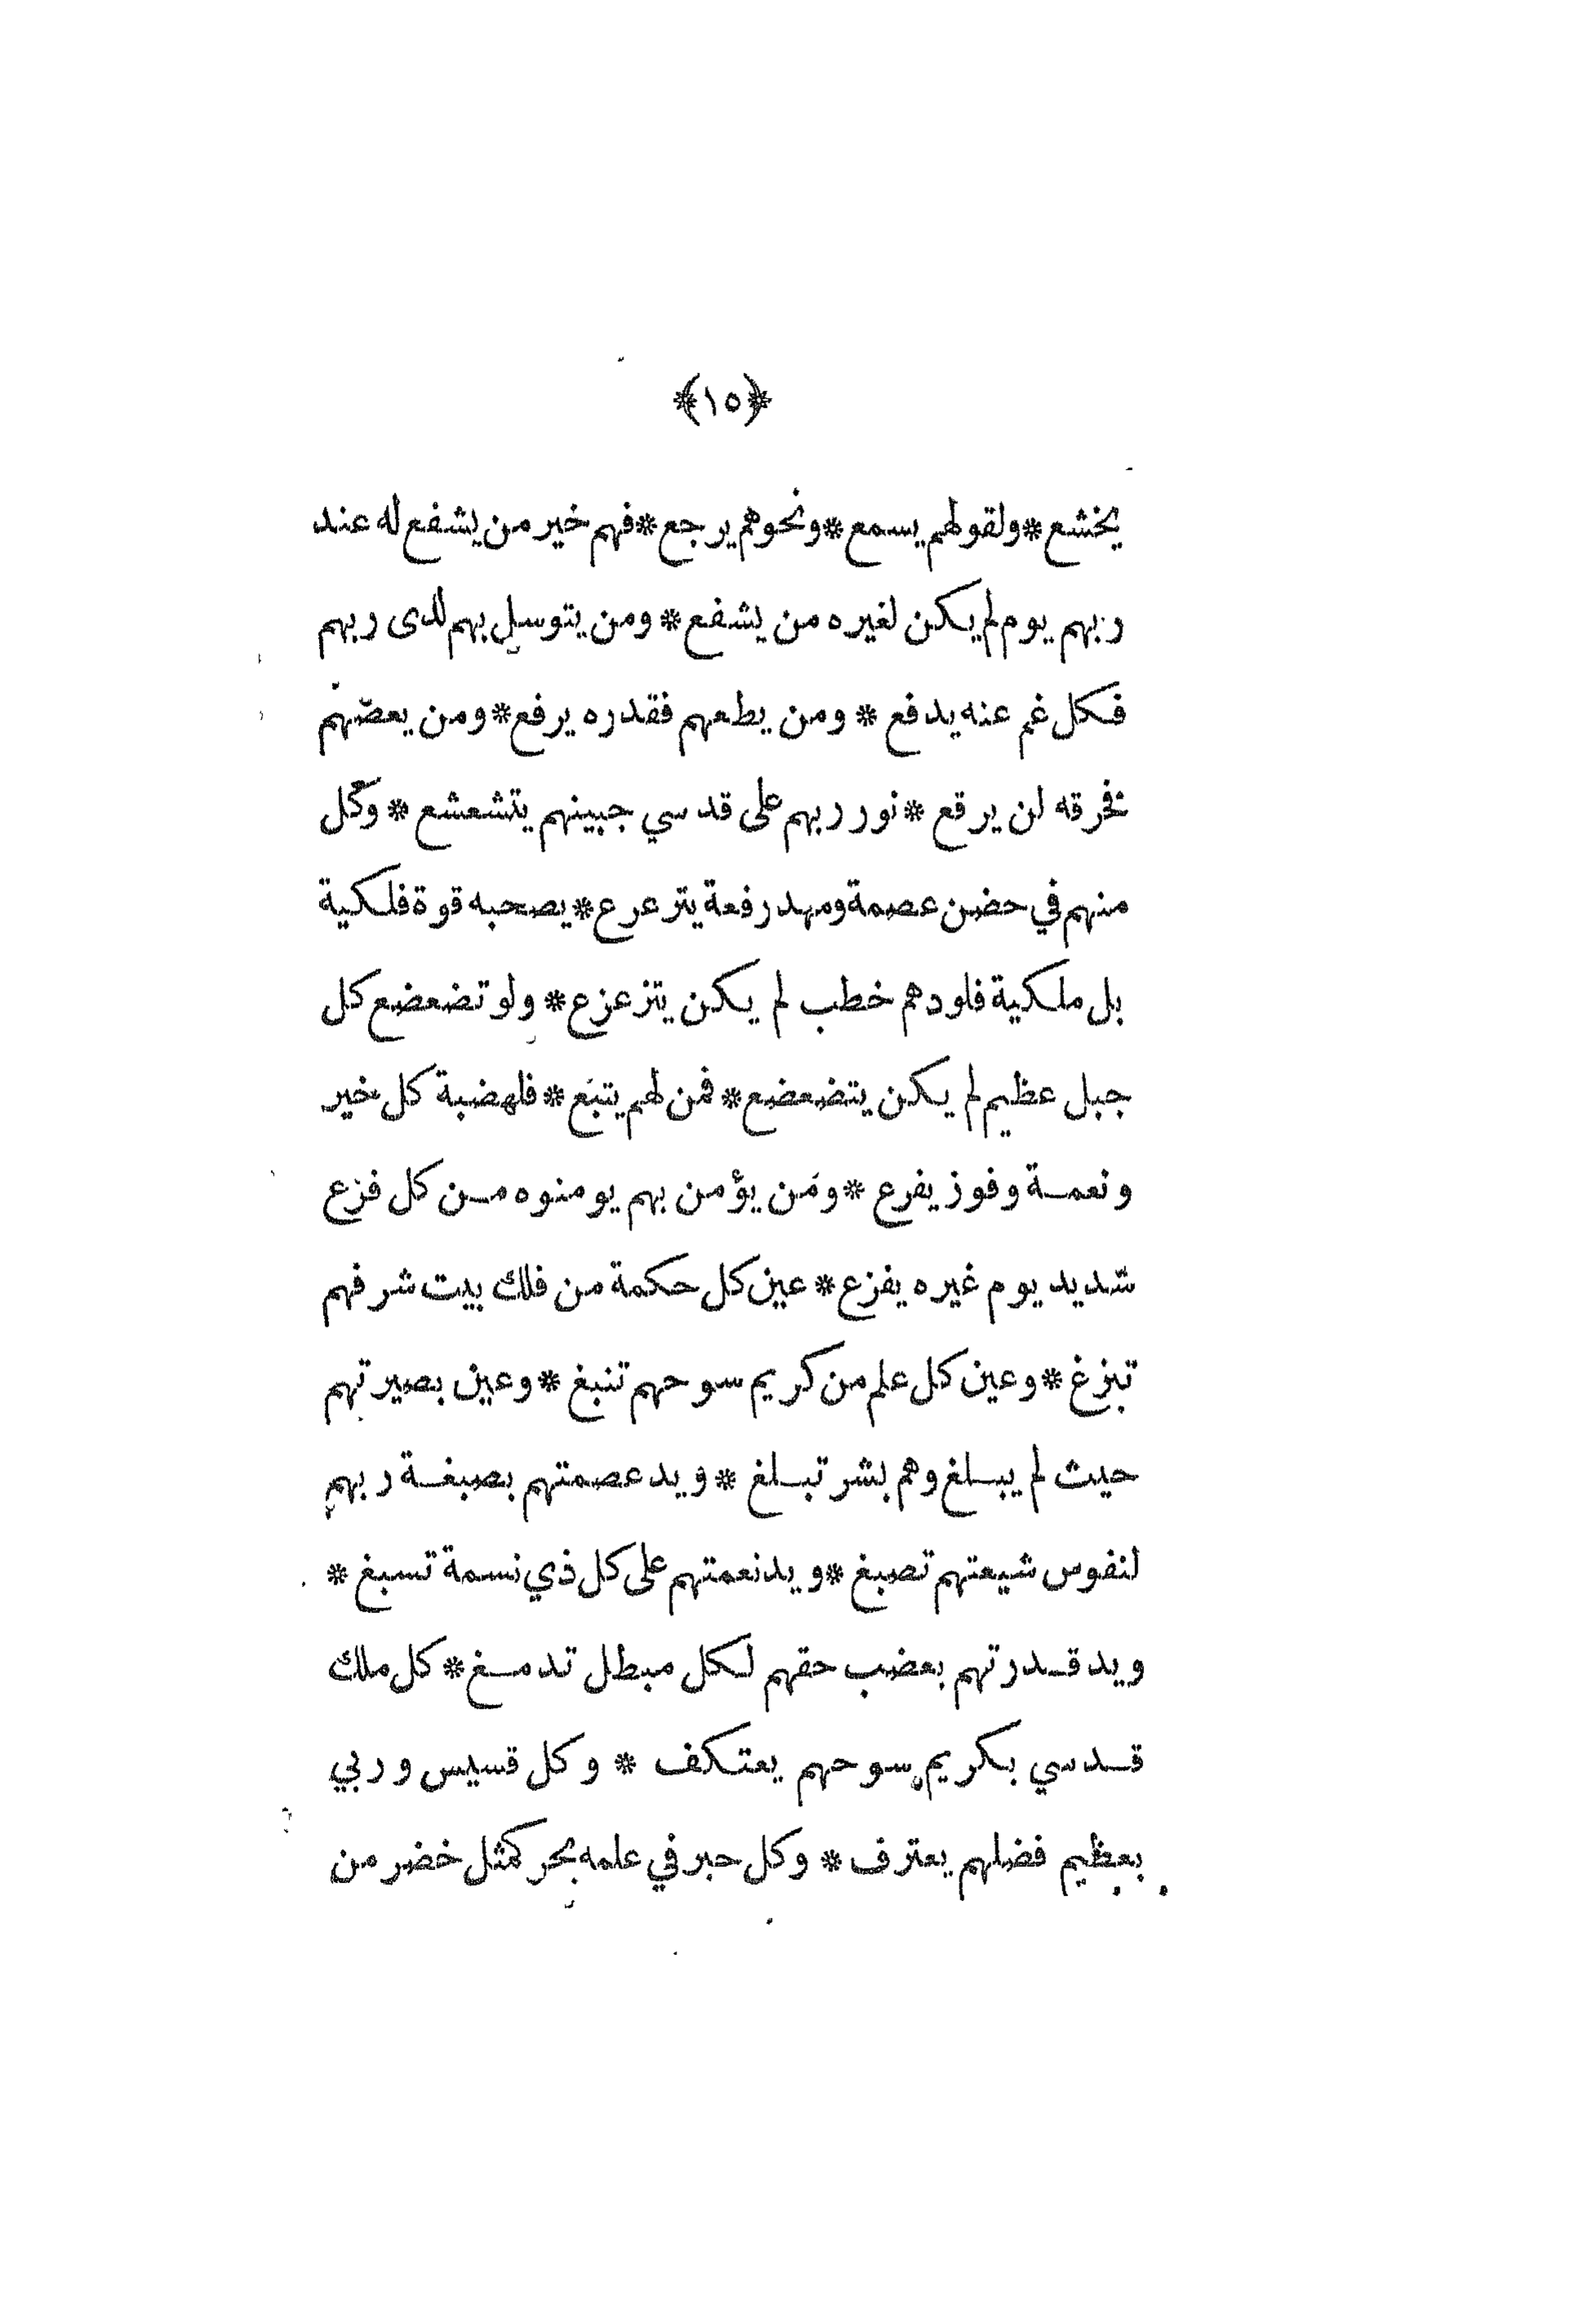 ﴿١٥﴾
يخشع * ولقولهم يسمع * ونحوهم يرجع * فهم خير من يشفع له عند
ربهم يوم لم يكن لغيره من يشفع * ومن يتوسل بهم لدى ربهم
فكل غم عنه يدفع * ومن يطعهم فقدره يرفع * ومن يعصهم
فخرقه لن يرقع * نور ربهم على قدسي جبينهم يتشعشع * وكل
منهم في حضن عصمة ومهد رفعة يترعرع * يصحبه قوة فلكية
بل ملكية فلودهم خطب لم يكن يتزعزع * ولو تضعضع كل
جبل عظيم لم يكن يتضعضع * فمن لهم يتبَع * فلهضبة كل خير
ونعمة وفوز يفرع * ومَن يؤمن بهم يومنوه من كل فزع
شديد يوم غيره يفزع * عين كل حكمة من فلك بيت شرفهم
تبزغ * وعين كل علم من كريم سوحهم تنبغ * وعين بصيرتهم
حيث لم يبلغ وهم بشر تبلغ * ويد عصمتهم بصبغة ربهم
لنفوس شيعتهم تصبغ * ويد نعمتهم على كل ذي نسمة تسبغ *
ويد قدرتهم بعضب حقهم لكل مبطل تدمغ * كل ملك
قدسي بكريم سوحهم يعتكف * وكل قسيس وربي
بعظيم فضلهم يعترف * وكل حبر في علمه بحر كمثل خضر من